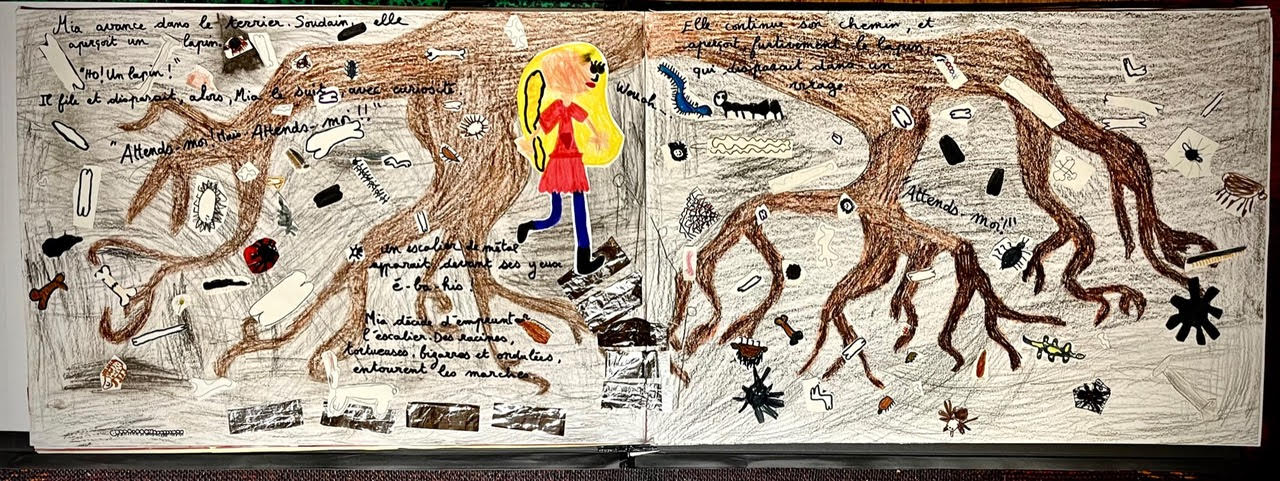 Mia avance dans le terrier. Soudain, elle
aperçoit un lapin.
"Ho! Un lapin!"
Il file et disparait, alors, Mia le suit, avec curiosité.
"Attends-moi! Mais Attends-moi!!"
un escalier de métal
apparait devant ses yeux
é-ba-his.
Mia décide d'emprunter
l'escalier. Des racines,
tortueuses, bizarres et ondulées,
entourent les marches.
Wouah
Elle continue son chemin, et
aperçoit furtivement le lapin,
qui disparait dans un
virage.
Attends-moi!!